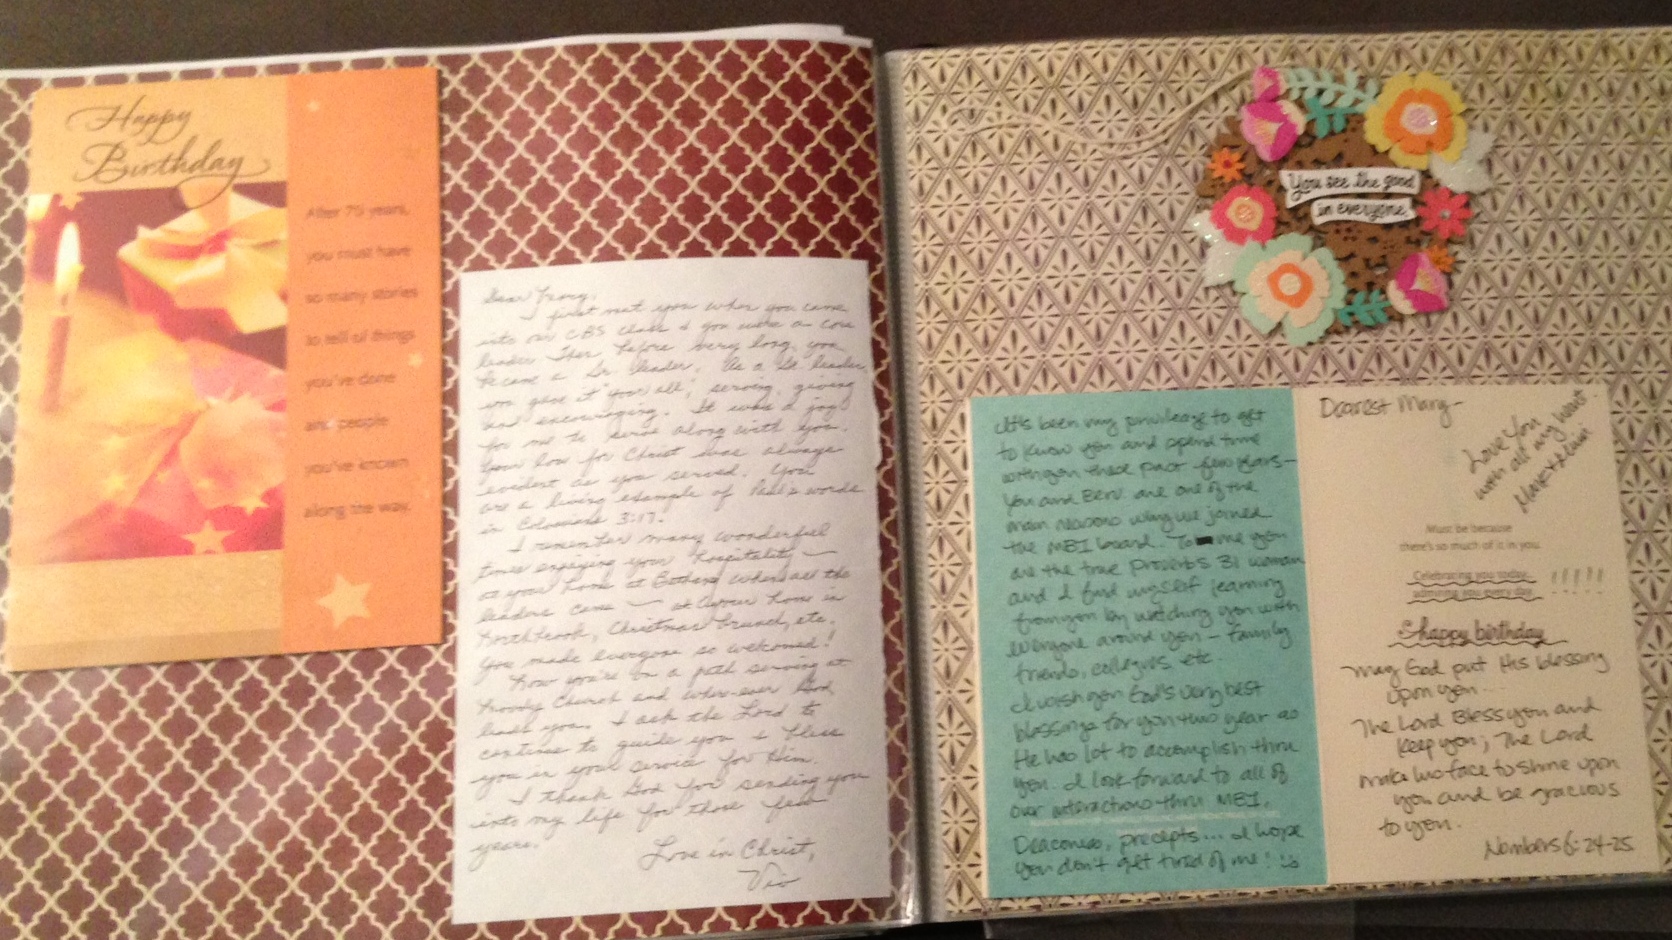 Happy
Birthday
After 75 years,
you must have
so many stories
to tell of things
you've done
and people
you've known
along the way.
I first met you when you came
into our CBS class & you were a core
leader then before very long, you
became a Sr. leader. As a Sr. leader
you gave it "your all," serving, giving
and encouraging. It was a joy
for me to serve along with you.
Your love for Christ was always
evident as you served. You
are a living example of Paul's words
in Colossians 3:17.
I remember many wonderful
times enjoying your hospitality —
at your home at when all the
leaders came — at your home in
Northbrook, Christmas brunch, etc.
You made everyone so welcomed!
Now you're on a path serving at
Moody Church and where-ever God
leads you. I ask the Lord to
continue to guide you & bless
you in your service for Him.
I thank God for sending you
into my life for those few
years.
Love in Christ,
Vio
You see the good
in everyone.
It's been my privilege to get
to know you and spend time
with you these past few years—
You and Bervi are one of the
main reasons why we joined
the MBI board. To me you
are the true Proverbs 31 woman
and I find myself learning
from you by watching you with
everyone around you — family
friends, collegues, etc.
I wish you God's very best
blessings for you this year as
He has lot to accomplish thru
you. I look forward to all of
our interactions thru MBI,
Deaconess, precepts... I hope
you don't get tired of me!
Dearest Mary-
Love You
with all my heart
Must be because
there's so much of it in you.
Celebrating you today,
admiring you every day. !!!!!
happy birthday
May God put His blessing
upon you...
The Lord Bless you and
keep you; The Lord
make his face to shine upon
you and be gracious
to you.
Numbers 6:24-25